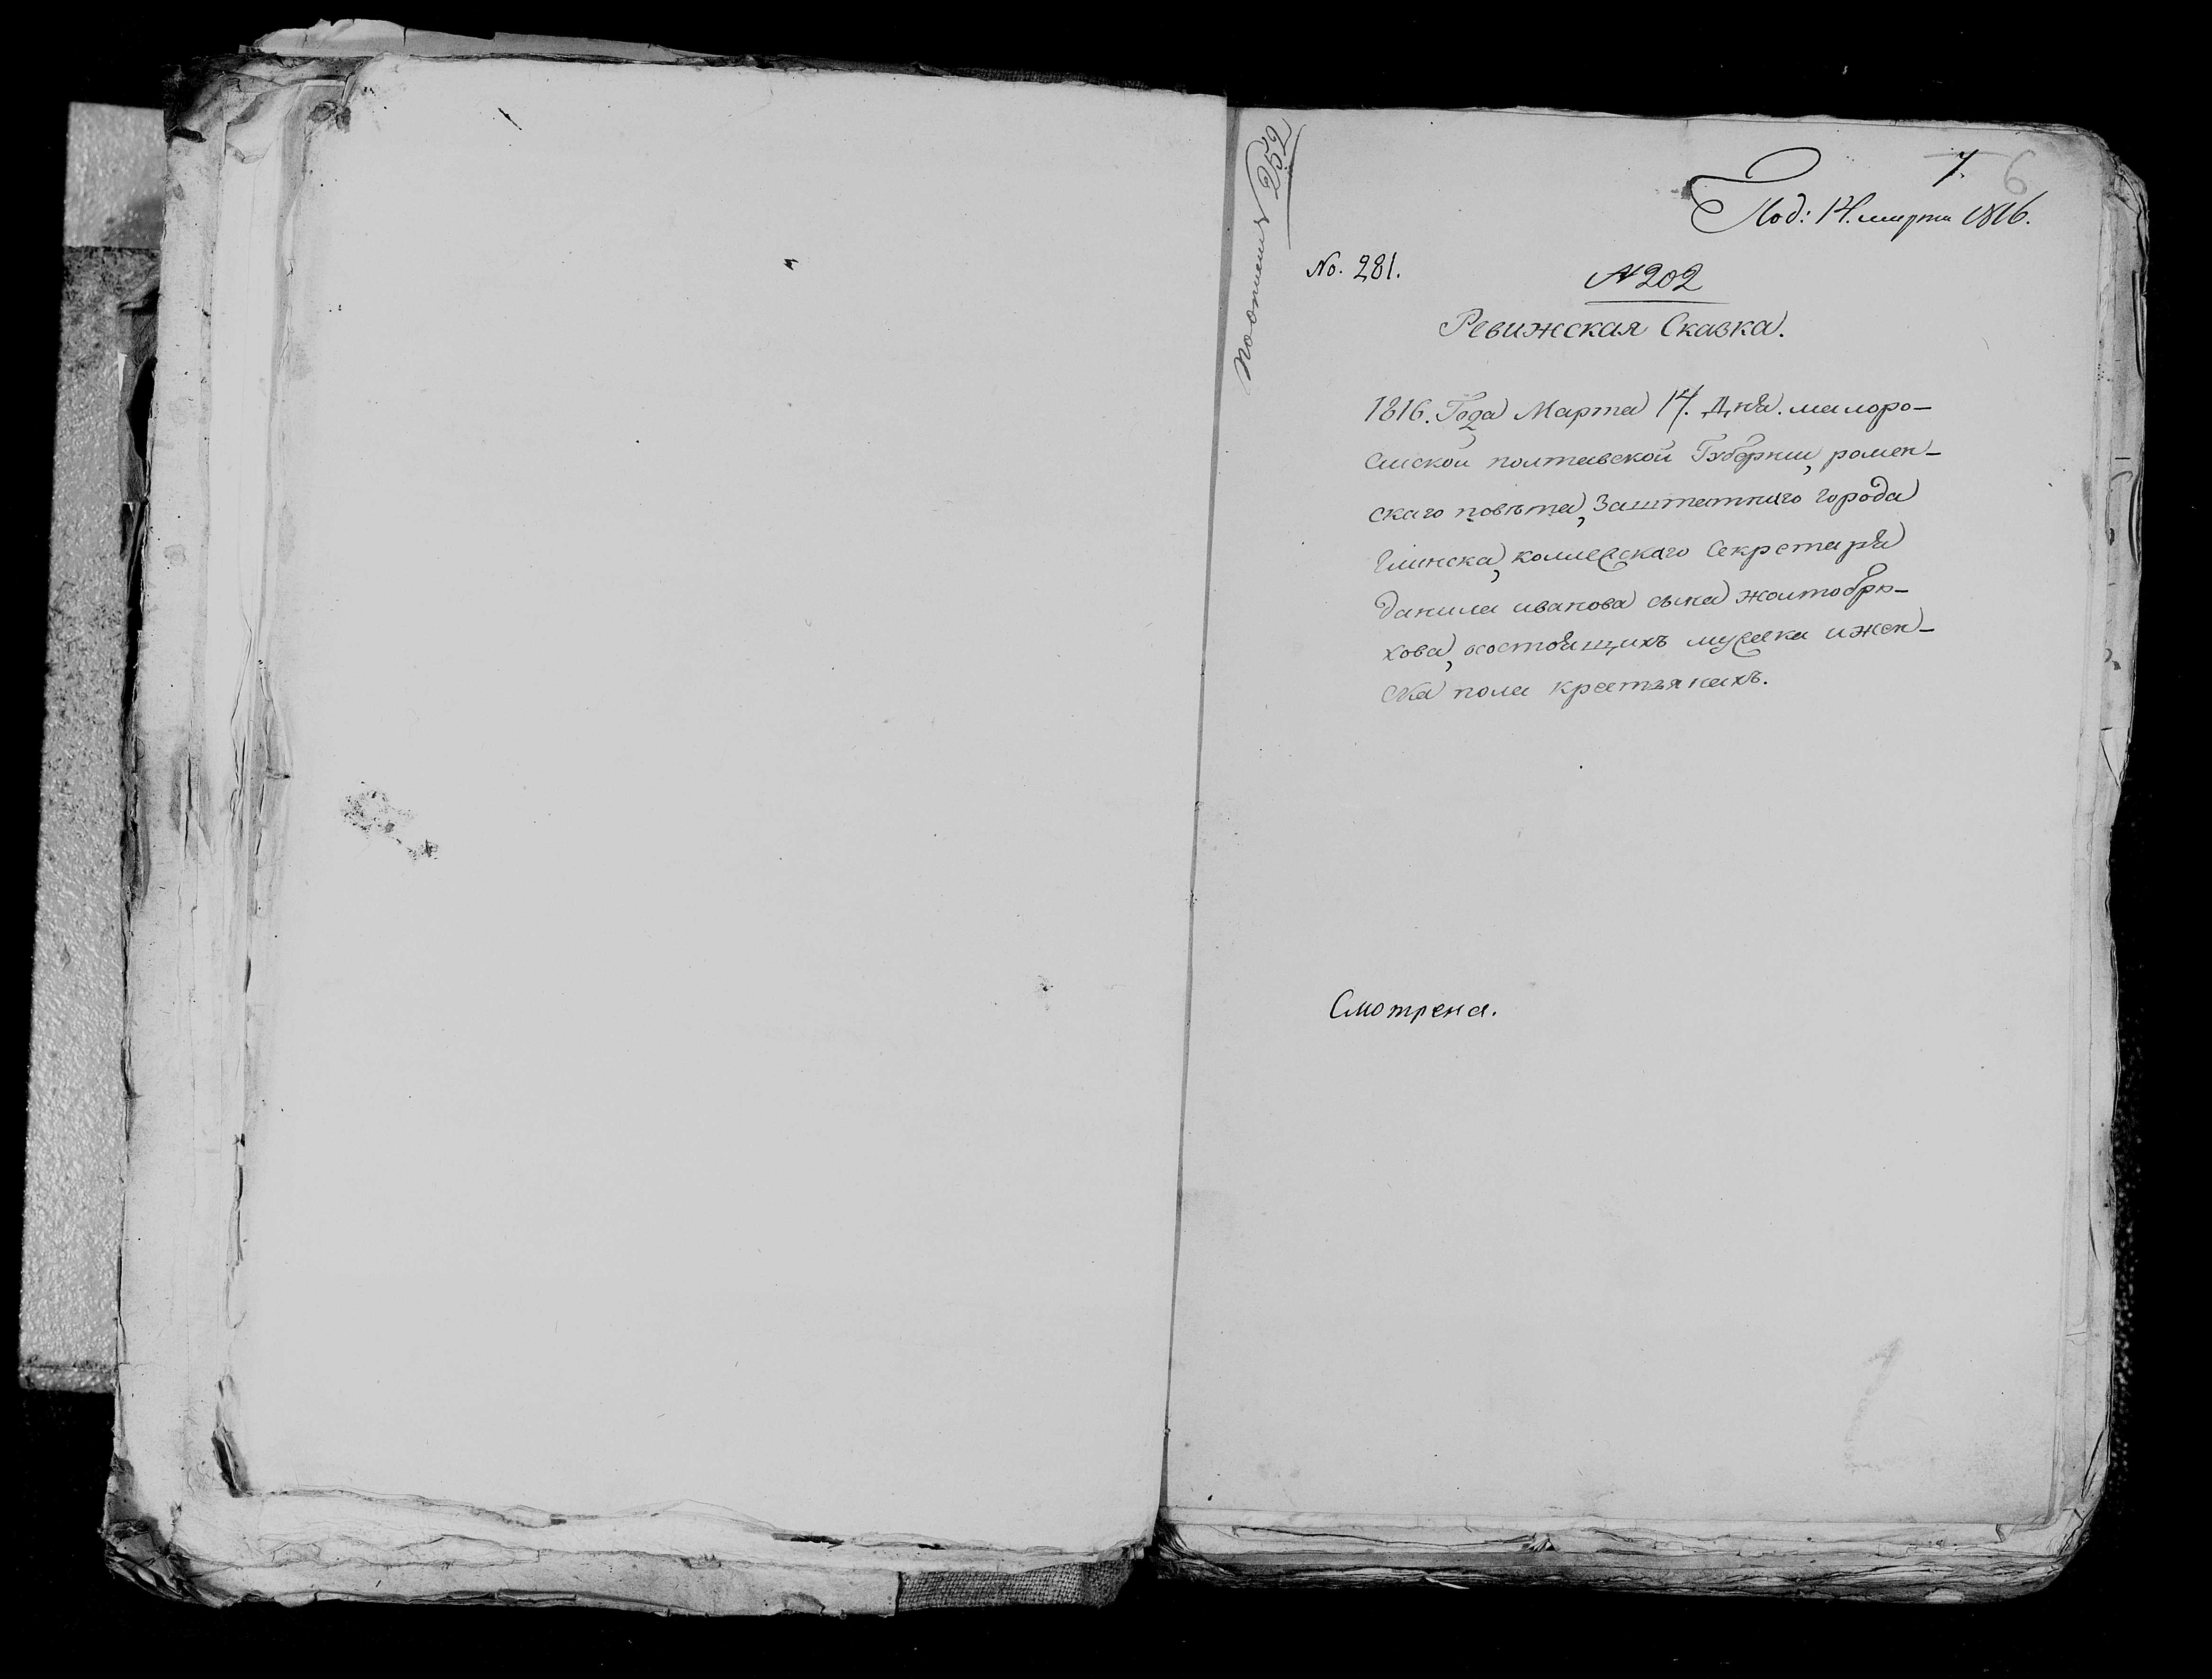 7. 6
Под: 14. марта 1816.
По описи № 292
No. 281.
№ 202
Ревижская Сказка.
1816. Года Марта 14. Дня. малоро-
сийской полтавской Губернии, ромен-
скаго повѣта, Заштатнаго города
Глинска, колležскаго Секретаря
данила иванова сына жолтобрю-
хова, осостоящихъ мужеска ижен-
ска пола крестьянахъ.
Смотрена.